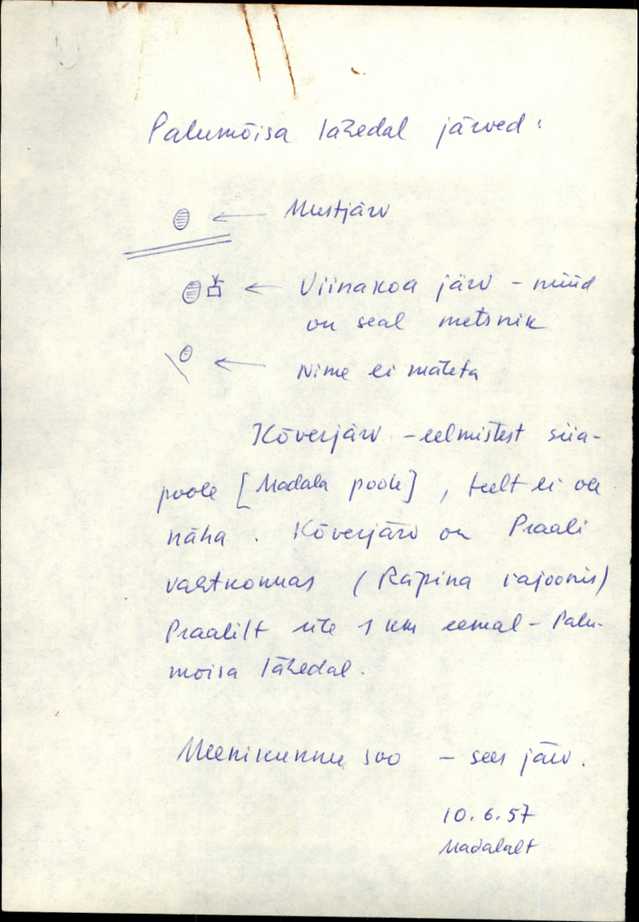 Palumõisa lähedal järved:
Mustjärv
Viinakoa järv - nüüd
on seal metsnik
Nime ei mäleta
Kõverjärv - eelmistest siia-
poole [Madala poole], teelt ei ole
näha. Kõverjärv on Praali
vahtkonnas (Räpina rajoonis)
Praalilt üle 1 km eemal - Palu-
mõisa lähedal.
Meenikunnu soo - sees järv.
10.6.57
Madalalt